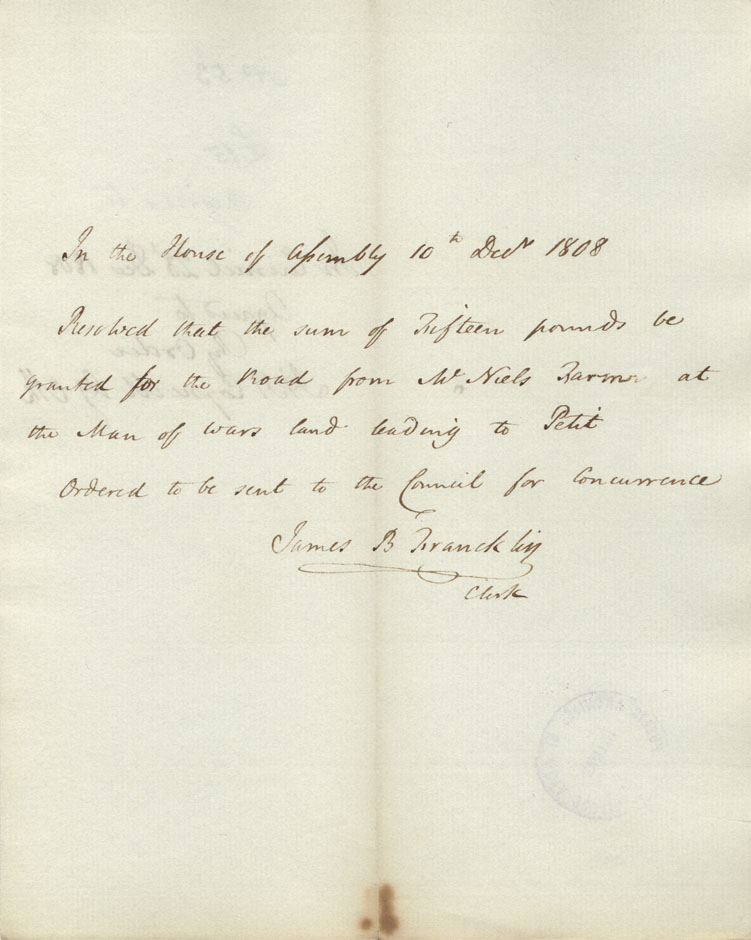 In the House of Assembly 10th Decr 1808
Resolved that the sum of Fifteen pounds be
granted for the Road from Mr Niels Farm at
the Man of wars land leading to Petit
Ordered to be sent to the Council for Concurrence
James B Francklin
Clerk